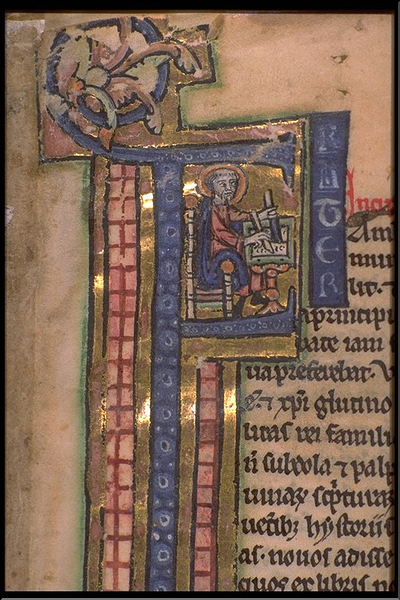 F
RATER
Inci
Am
mun
lit
a principi
bate iam
ua preferebat. V
⁊ xp̄i glutino
litas rei famili
n̄ subdola ⁊ palp
uinaꝝ scptura
uetibꝫ hystoriis
as. nouos adisse
quos ex libris n